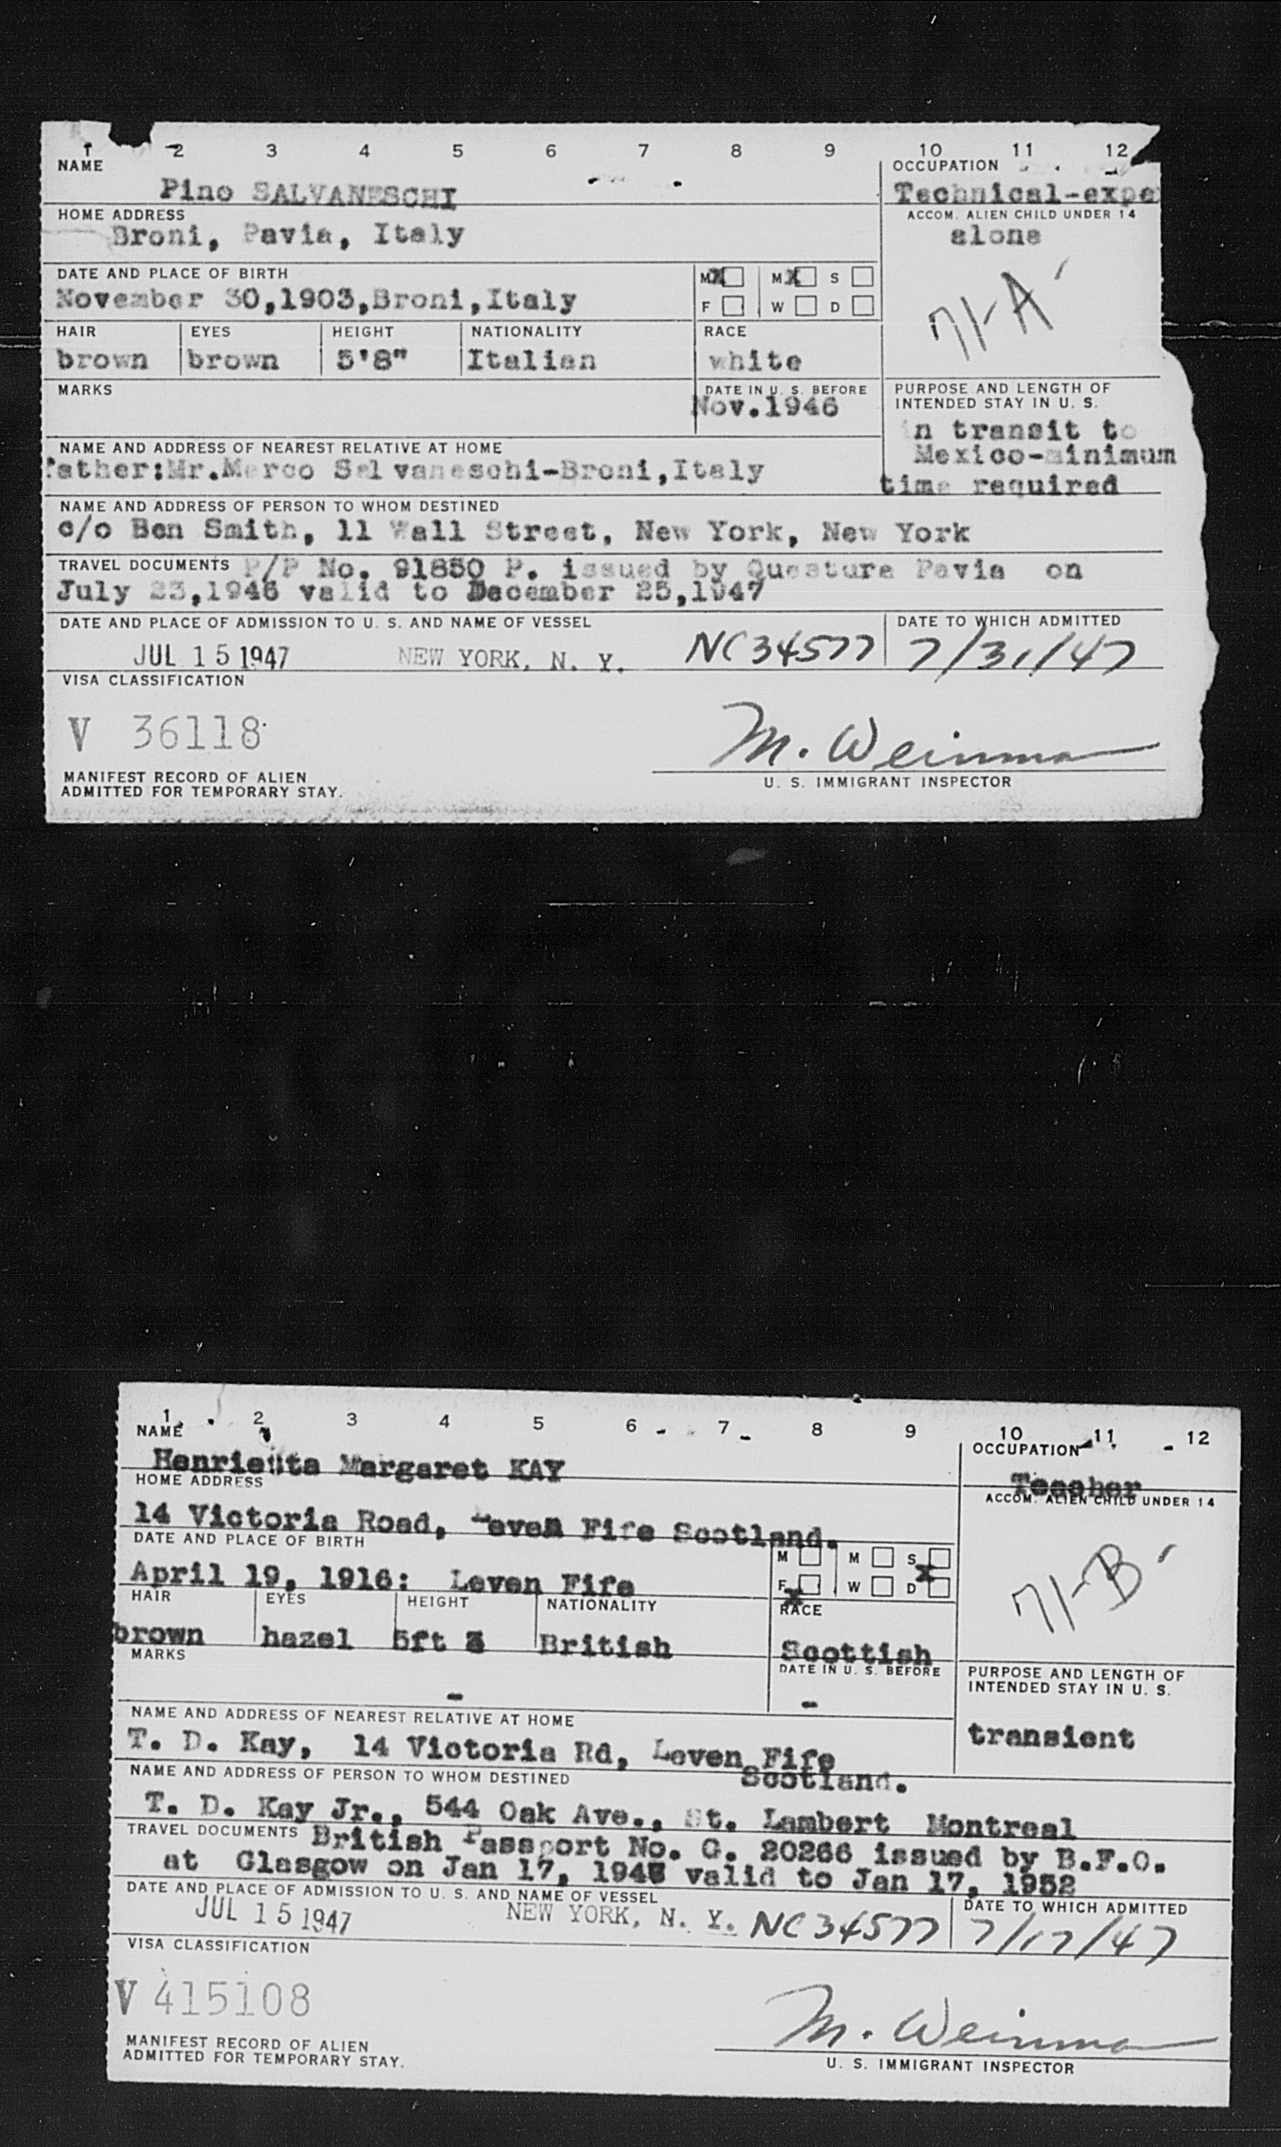 1 2 3 4 5 6 7 8 9 10 11 12
NAME OCCUPATION
Pino SALVANESCHI Technical-expe
HOME ADDRESS ACCOM. ALIEN CHILD UNDER 14
Broni, Pavia, Italy alone
71-A
DATE AND PLACE OF BIRTH M X M X S
November 30,1903,Broni,Italy F W D
HAIR EYES HEIGHT NATIONALITY RACE
brown brown 5'8" Italian white
MARKS DATE IN U. S. BEFORE PURPOSE AND LENGTH OF
Nov.1946 INTENDED STAY IN U. S.
in transit to
NAME AND ADDRESS OF NEAREST RELATIVE AT HOME Mexico-minimum
father:Mr.Marco Salvaneschi-Broni,Italy time required
NAME AND ADDRESS OF PERSON TO WHOM DESTINED
c/o Ben Smith, 11 Wall Street, New York, New York
TRAVEL DOCUMENTS P/P No. 91850 P. issued by Questura Pavia on
July 23,1946 valid to December 25,1947
DATE AND PLACE OF ADMISSION TO U. S. AND NAME OF VESSEL DATE TO WHICH ADMITTED
JUL 15 1947 NEW YORK, N. Y. NC34577 7/31/47
VISA CLASSIFICATION
V 36118
M. Weinman
MANIFEST RECORD OF ALIEN U. S. IMMIGRANT INSPECTOR
ADMITTED FOR TEMPORARY STAY.
1 2 3 4 5 6 7 8 9 10 11 12
NAME OCCUPATION
Henrietta Margaret KAY Teacher
HOME ADDRESS ACCOM. ALIEN CHILD UNDER 14
14 Victoria Road, Leven Fife Scotland.
71-B
DATE AND PLACE OF BIRTH M M S
April 19, 1916: Leven Fife F X W D X
HAIR EYES HEIGHT NATIONALITY RACE
brown hazel 5ft 3 British Scottish
MARKS DATE IN U. S. BEFORE PURPOSE AND LENGTH OF
- - INTENDED STAY IN U. S.
NAME AND ADDRESS OF NEAREST RELATIVE AT HOME transient
T. D. Kay, 14 Victoria Rd, Leven Fife
NAME AND ADDRESS OF PERSON TO WHOM DESTINED Scotland.
T. D. Kay Jr., 544 Oak Ave., St. Lambert Montreal
TRAVEL DOCUMENTS British Passport No. G. 20266 issued by B.F.O.
at Glasgow on Jan 17, 1947 valid to Jan 17, 1952
DATE AND PLACE OF ADMISSION TO U. S. AND NAME OF VESSEL DATE TO WHICH ADMITTED
JUL 15 1947 NEW YORK, N. Y. NC34577 7/17/47
VISA CLASSIFICATION
V 415108
M. Weinman
MANIFEST RECORD OF ALIEN U. S. IMMIGRANT INSPECTOR
ADMITTED FOR TEMPORARY STAY.